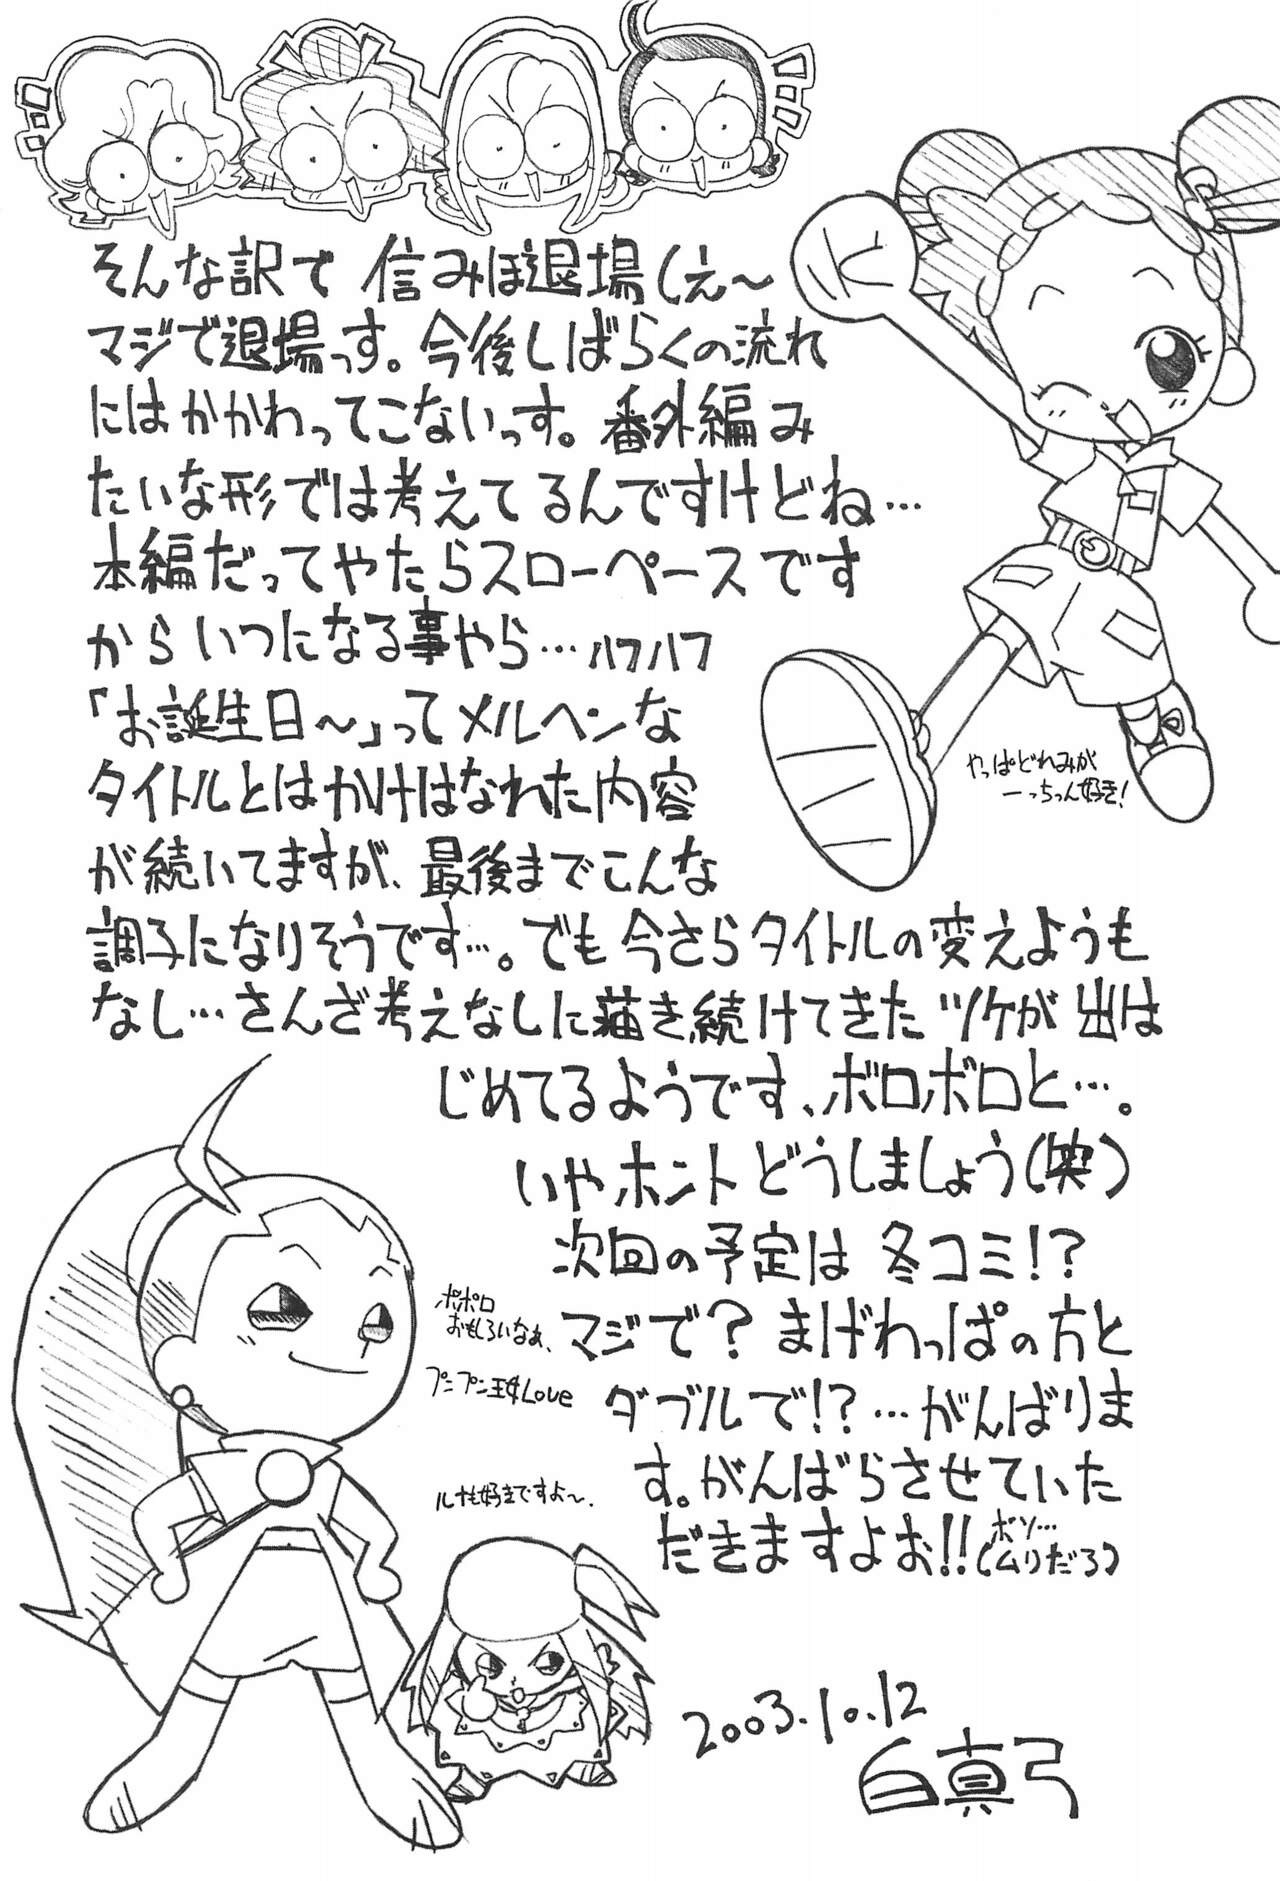 そんな訳で 信みほ退場(え〜
マジで退場っす。今後しばらくの流れ
にはかかわってこないっす。番外編み
たいな形では考えてるんですけどね…
本編だってやたらスローペースです
からいつになる事やら…ハフハフ
「お誕生日〜」ってメルヘンな
タイトルとはかけはなれた内容
が続いてますが、最後までこんな
調子になりそうです…。でも今さらタイトルの変えようも
なし…さんざ考えなしに描き続けてきたツケが出は
じめてるようです、ボロボロと…。
いやホントどうしましょう(笑)
次回の予定は 冬コミ!?
マジで? まげわっぱの方と
ダブルで!?…がんばりま
す。がんばらさせていた
だきますよお!!(ボソ…ムリだろ)
やっぱどれみが
一っちゃん好き!
ポポロ
おもしろいなぁ、
プニプン王女Love
ルナも好きですよ〜、
2003.10.12
白真弓